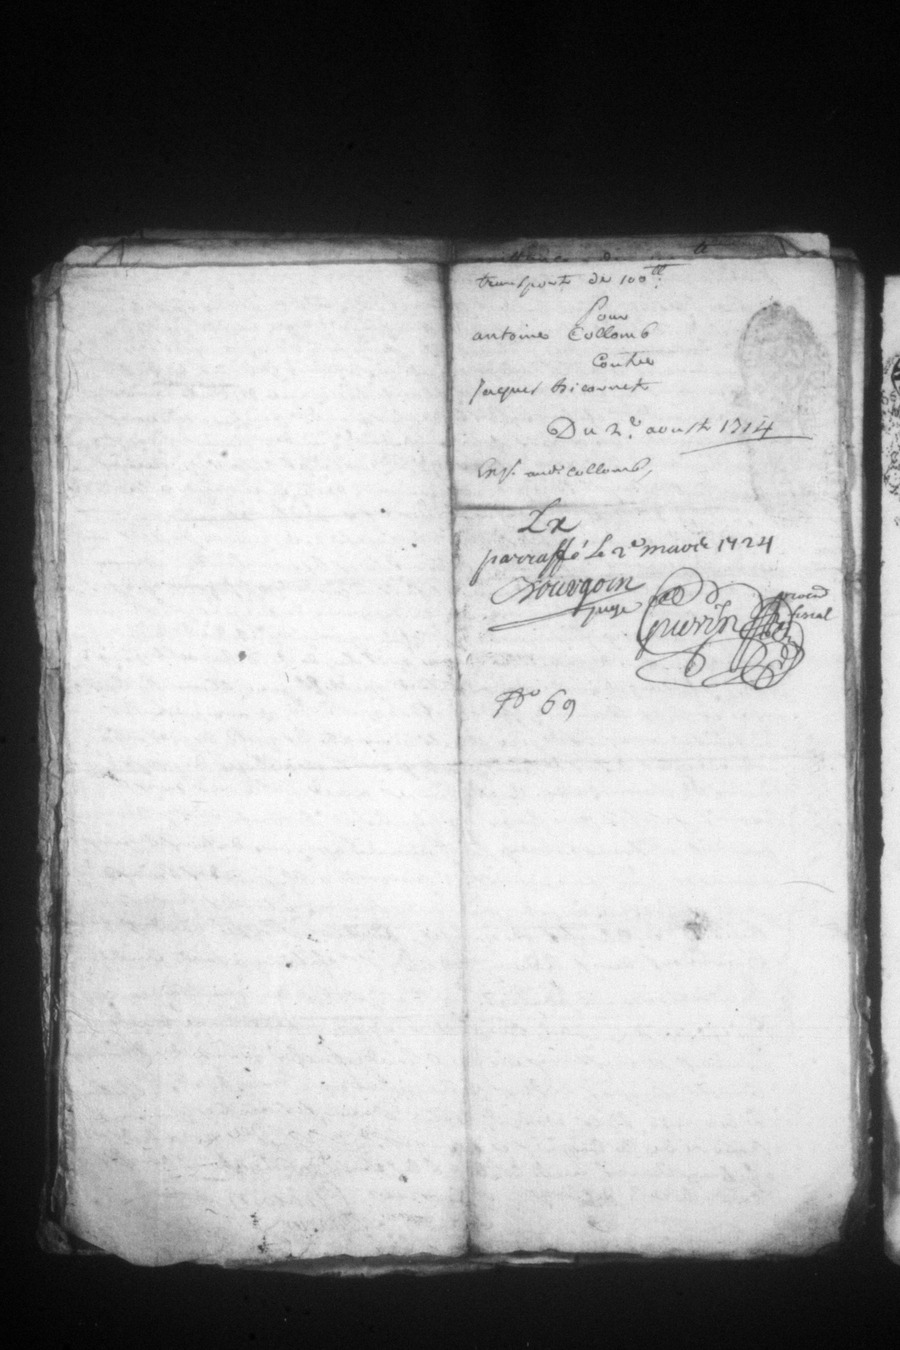 transport de 100ᵗᵗ
Pour
antoine Collomb
Contre
Jaques bricornet
Du 2ᵉ aoust 1714
collomb
parraffé le 2ᵉ mars 1724
Bourgoin
juge
Guerin
fiscal
Nº 69